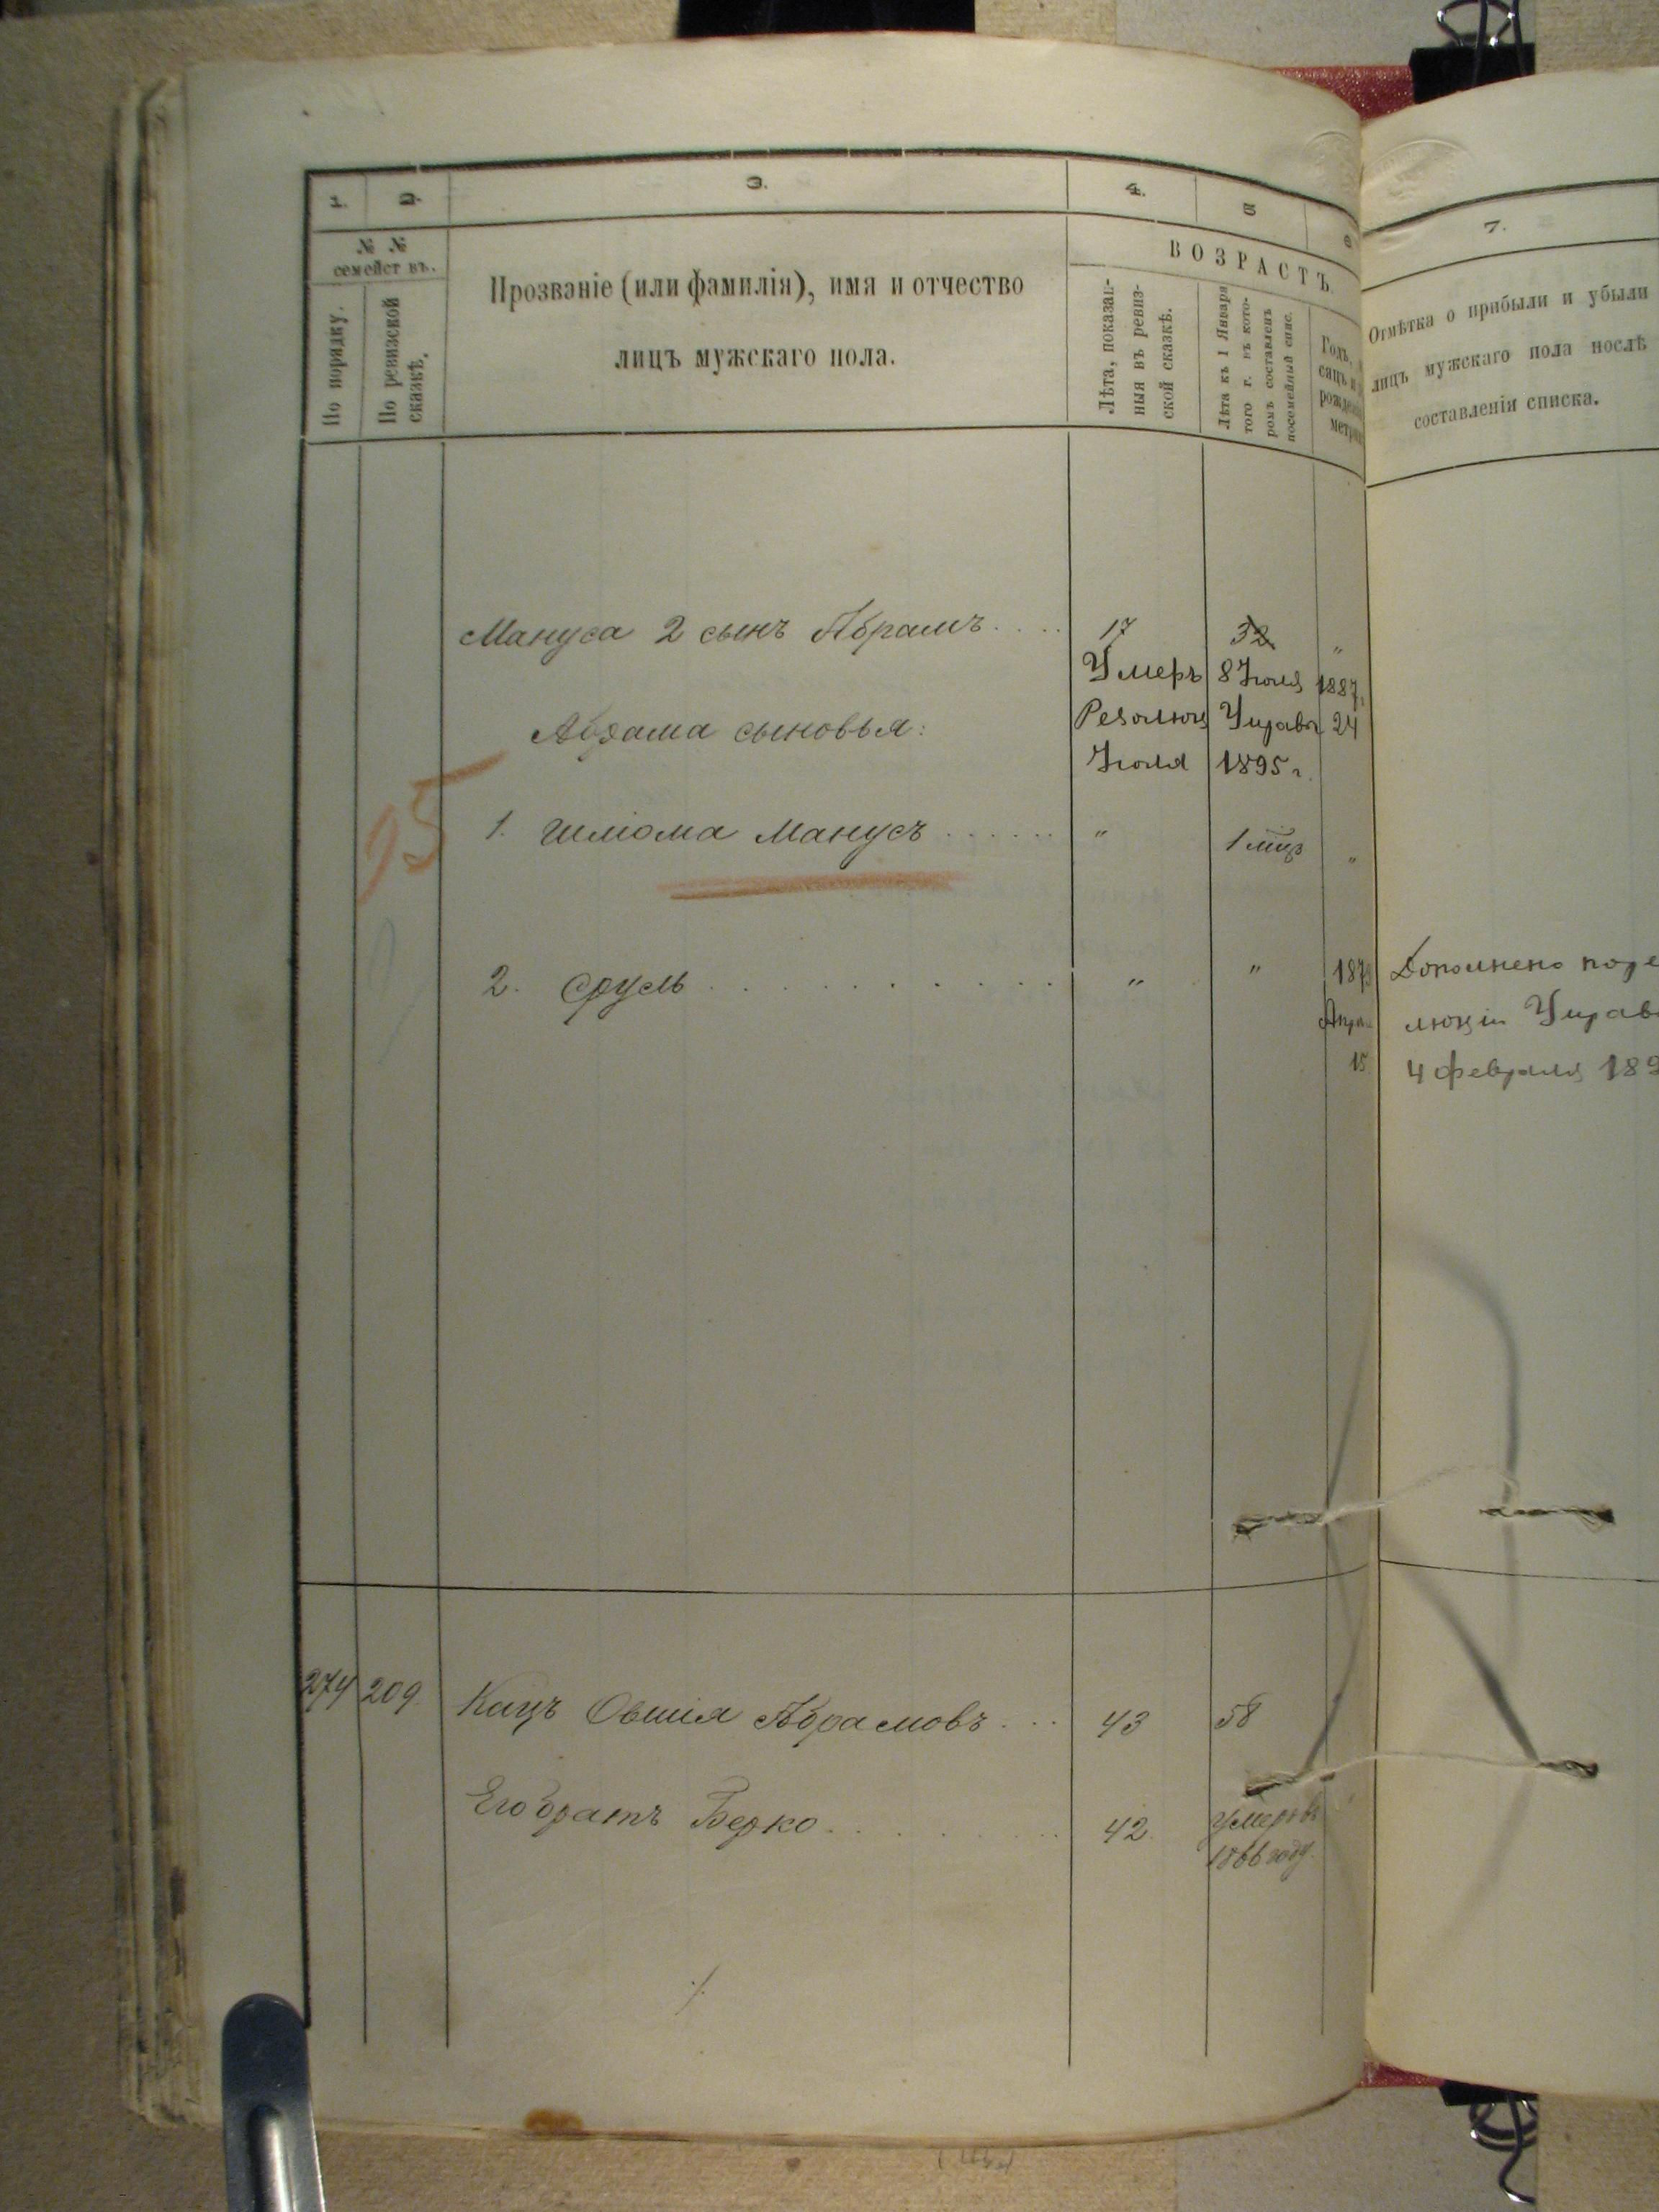 1. 2. 3. 4. 5 6
№ №
семействъ.
По порядку.
По ревизской
сказкѣ.
Прозваніе (или фамилія), имя и отчество
лицъ мужскаго пола.
ВОЗРАСТЪ.
Лѣта, показан-
ныя въ ревиз-
ской сказкѣ.
Лѣта къ 1 Января
того г. въ кото-
ромъ составленъ
посемейный спис.
Годъ,
сяцъ и
рожден
метрик
7.
Отмѣтка о прибыли и убыли
лицъ мужскаго пола послѣ
составленія списка.
Мануса 2 сынъ Абрамъ . . . . 17 32 "
Умеръ 8 Іюля 1887,
Абрама сыновья: Резолюц Управы 24
Іюля 1895 г.
95
1. Шліома Манусъ . . . . . . " 1 мцъ "
2. Сруль . . . . . . . . . . " " 1879 Дополнено по ре
Апрл люціи Управ
15 4 февраля 189
274 209. Кацъ Овшія Абрамовъ . . . 43 58
Его братъ Берко . . . . . . . . 42 умеръ въ
1866 году.